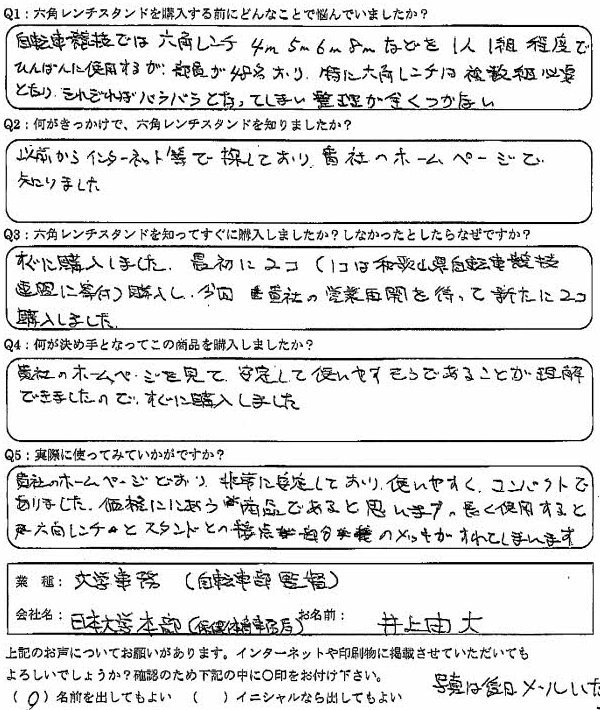 Q1：六角レンチスタンドを購入する前にどんなことで悩んでいましたか？
自転車競技では六角レンチ 4m 5m 6m 8m などを 1人 1組 程度で
ひんぱんに使用するが、部員が48名おり、特に六角レンチは複数組必要
となり、それぞればバラバラとなってしまい整理が全くつかない
Q2：何がきっかけで、六角レンチスタンドを知りましたか？
以前からインターネット等で探しており、貴社のホームページで
知りました
Q3：六角レンチスタンドを知ってすぐに購入しましたか？しなかったとしたらなぜですか？
すぐに購入しました。最初に2コ（1コは和歌山県自転車競技
連盟に寄付）購入し、今回 貴社の営業再開を待って新たに2コ
購入しました。
Q4：何が決め手となってこの商品を購入しましたか？
貴社のホームページを見て、安定して使いやすそうであることが理解
できましたので、すぐに購入しました
Q5：実際に使ってみていかがですか？
貴社のホームページどおり、非常に安定しており、使いやすく、コンパクトで
ありました。価格ににあう商品であると思います。長く使用すると
六角レンチとスタンドとの接点 のメッキがすれてしまいます
業 種：大学事務（自転車部監督）
会社名：日本大学本部（保健体育事務局） お名前：井上由大
上記のお声についてお願いがあります。インターネットや印刷物に掲載させていただいても
よろしいでしょうか？確認のため下記の中に〇印をお付け下さい。
（〇）名前を出してもよい （ ）イニシャルなら出してもよい 写真は後日メールいた